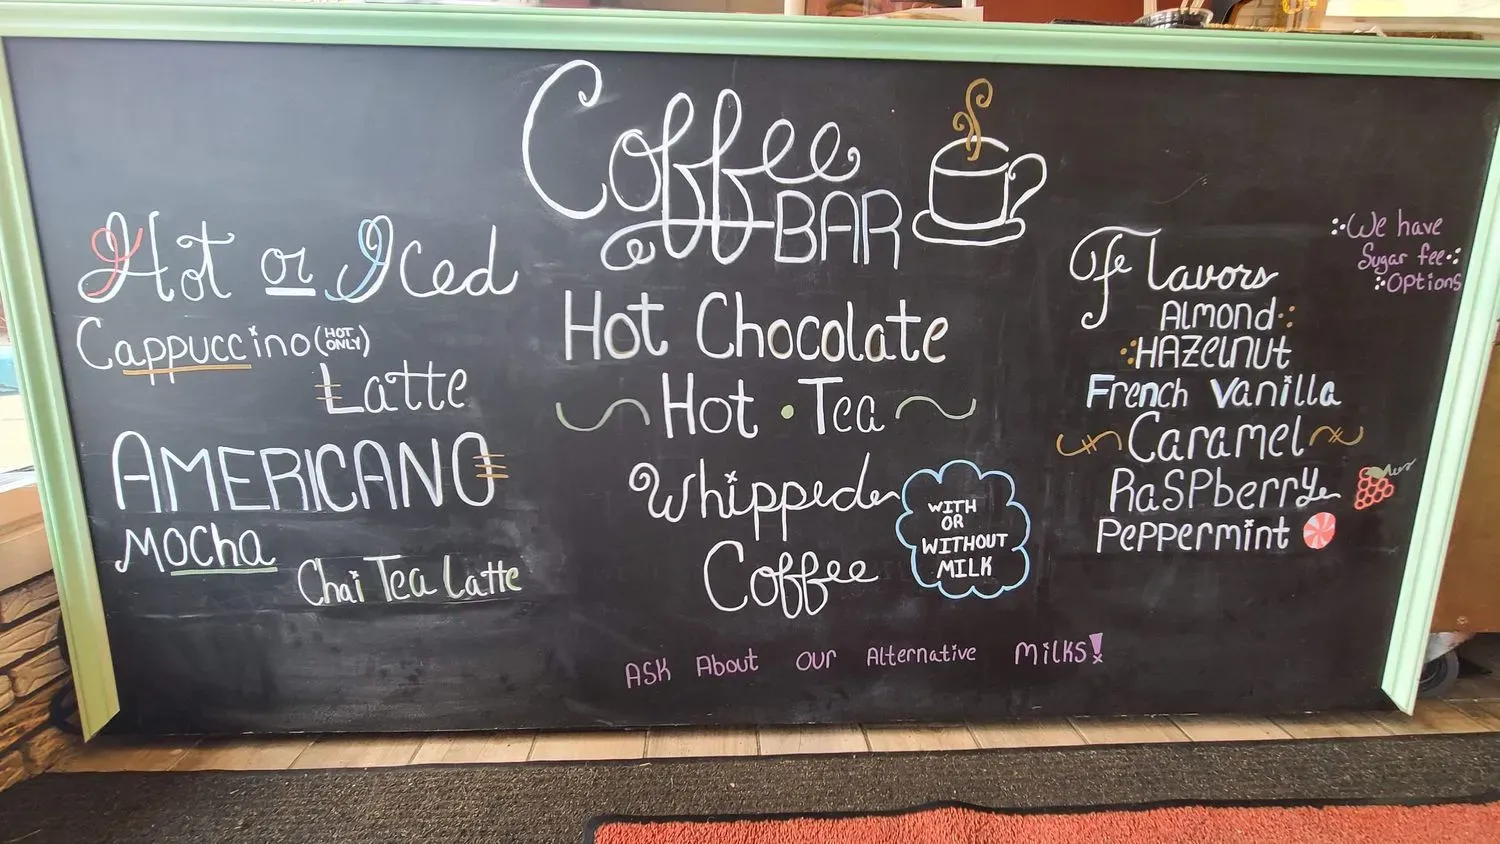 Coffee
BAR
Hot or Iced
Cappuccino (HOT ONLY)
Latte
AMERICANO
Mocha
Chai Tea Latte
Hot Chocolate
Hot Tea
Whipped
Coffee
WITH
OR
WITHOUT
MILK
ASK About our Alternative Milks!
Flavors
ALMOND
HAZelnut
French Vanilla
Caramel
RaSPberry
PePPermint
We have
Sugar free
Options